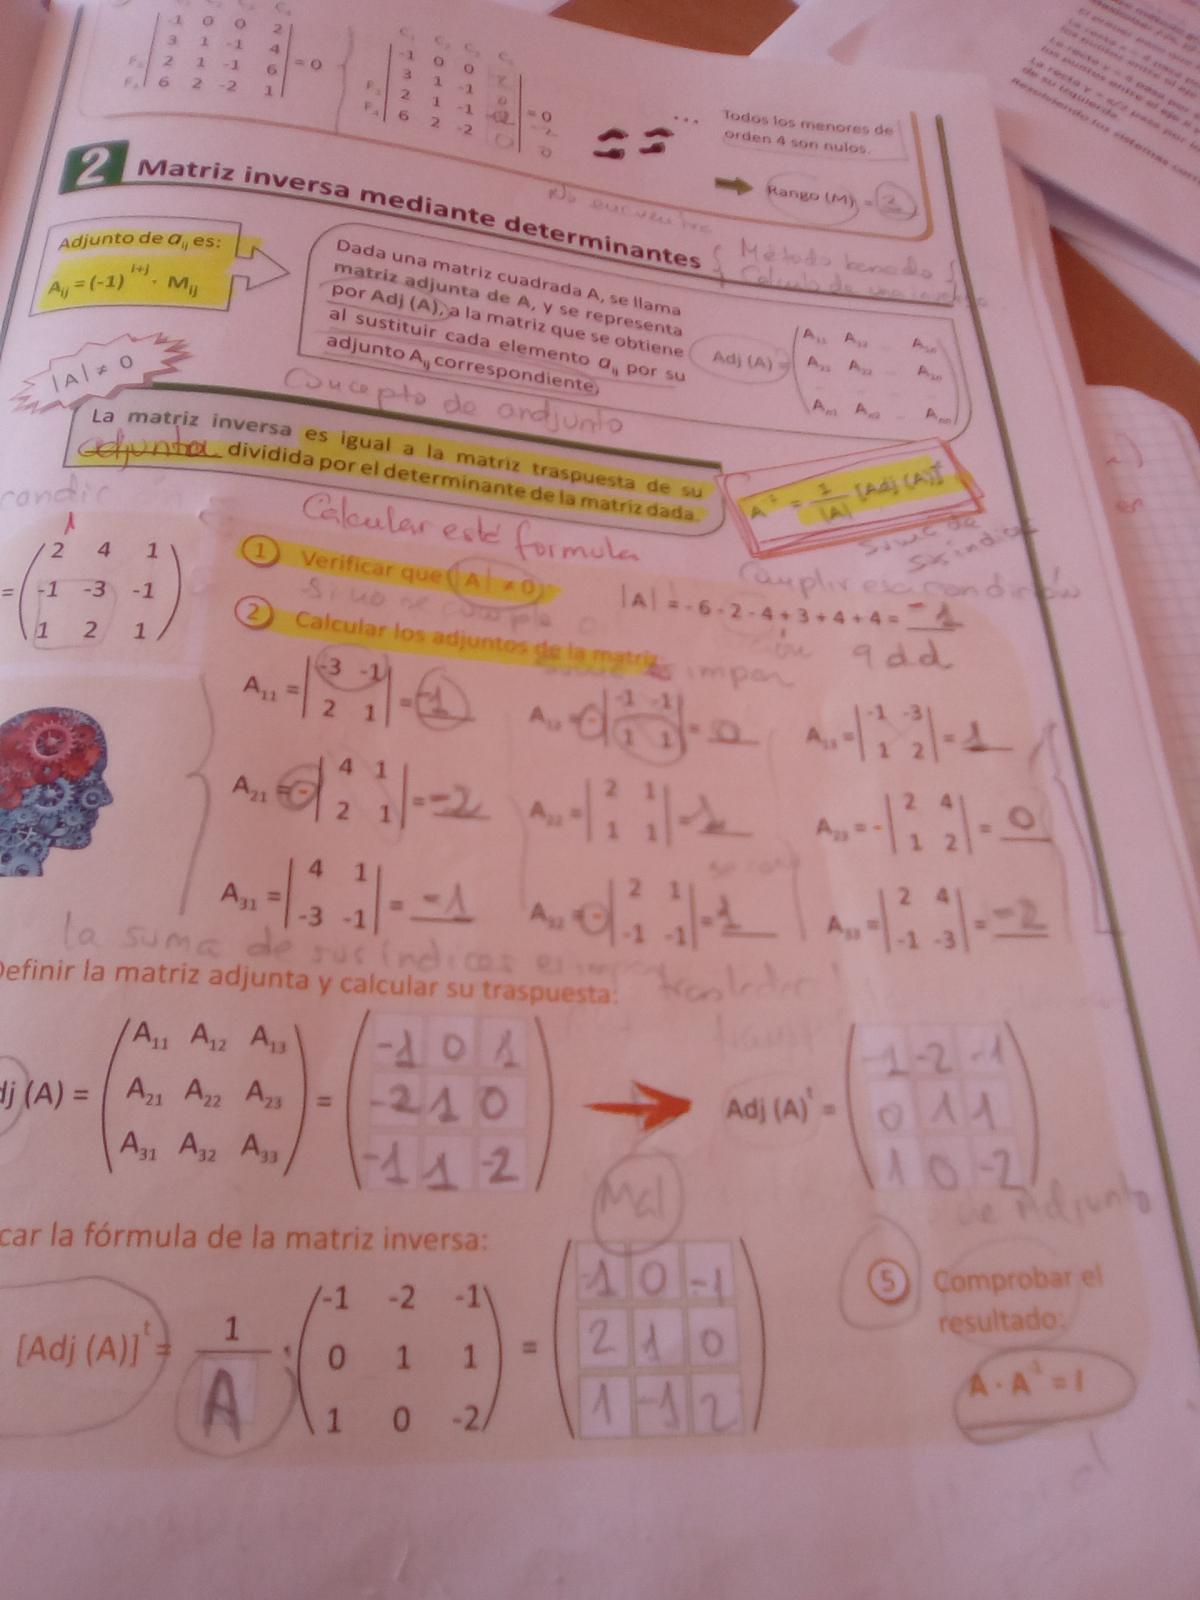 C₁ C₂ C₃ C₄
-1 0 0 2
3 1 -1 4
F₃ 2 1 -1 6 = 0
F₄ 6 2 -2 1
C₁ C₂ C₃
-1 0 0
3 1 -1
F₃ 2 1 -1 = 0
F₄ 6 2 -2
...
Todos los menores de
orden 4 son nulos.
Rango (M) = 2
2 Matriz inversa mediante determinantes
Método basado
Adjunto de aᵢⱼ es:
Aᵢⱼ = (-1)ⁱ⁺ʲ · Mᵢⱼ
Dada una matriz cuadrada A, se llama
matriz adjunta de A, y se representa
por Adj (A), a la matriz que se obtiene
al sustituir cada elemento aᵢⱼ por su
adjunto Aᵢⱼ correspondiente.
Adj (A) =
A₁₁ A₁₂ ... A₁ₙ
A₂₁ A₂₂ ... A₂ₙ
Aₙ₁ Aₙ₂ ... Aₙₙ
|A| ≠ 0
Concepto de andjunto
La matriz inversa es igual a la matriz traspuesta de su
adjunta dividida por el determinante de la matriz dada.
A⁻¹ = 1/|A| [Adj (A)]ᵗ
Calcular esté formula
Cumplir esa condición
=
2 4 1
-1 -3 -1
1 2 1
1 Verificar que |A| ≠ 0
|A| = - 6 - 2 - 4 + 3 + 4 + 4 = -1
Si no se cumple
qdd
2 Calcular los adjuntos de la matriz
impar
A₁₁ = |-3 -1| = -1
|2 1|
A₁₂ = - |-1 -1| = 0
|1 1|
A₁₃ = |-1 -3| = 1
|1 2|
A₂₁ = - |4 1| = -2
|2 1|
A₂₂ = |2 1| = 1
|1 1|
A₂₃ = - |2 4| = 0
|1 2|
A₃₁ = |4 1| = -1
|-3 -1|
A₃₂ = - |2 1| = 1
|-1 -1|
A₃₃ = |2 4| = -2
|-1 -3|
la suma de sus índices es impar
Definir la matriz adjunta y calcular su traspuesta:
trasladar
dj (A) =
A₁₁ A₁₂ A₁₃
A₂₁ A₂₂ A₂₃
A₃₁ A₃₂ A₃₃
=
-1 0 1
-2 1 0
-1 1 -2
Adj (A)ᵗ =
-1 -2 -1
0 1 1
1 0 -2
Mal
de Adjunto
car la fórmula de la matriz inversa:
[Adj (A)]ᵗ = 1/A ·
-1 -2 -1
0 1 1
1 0 -2
=
-1 0 -1
2 1 0
1 -1 2
5 Comprobar el
resultado:
A · A⁻¹ = I